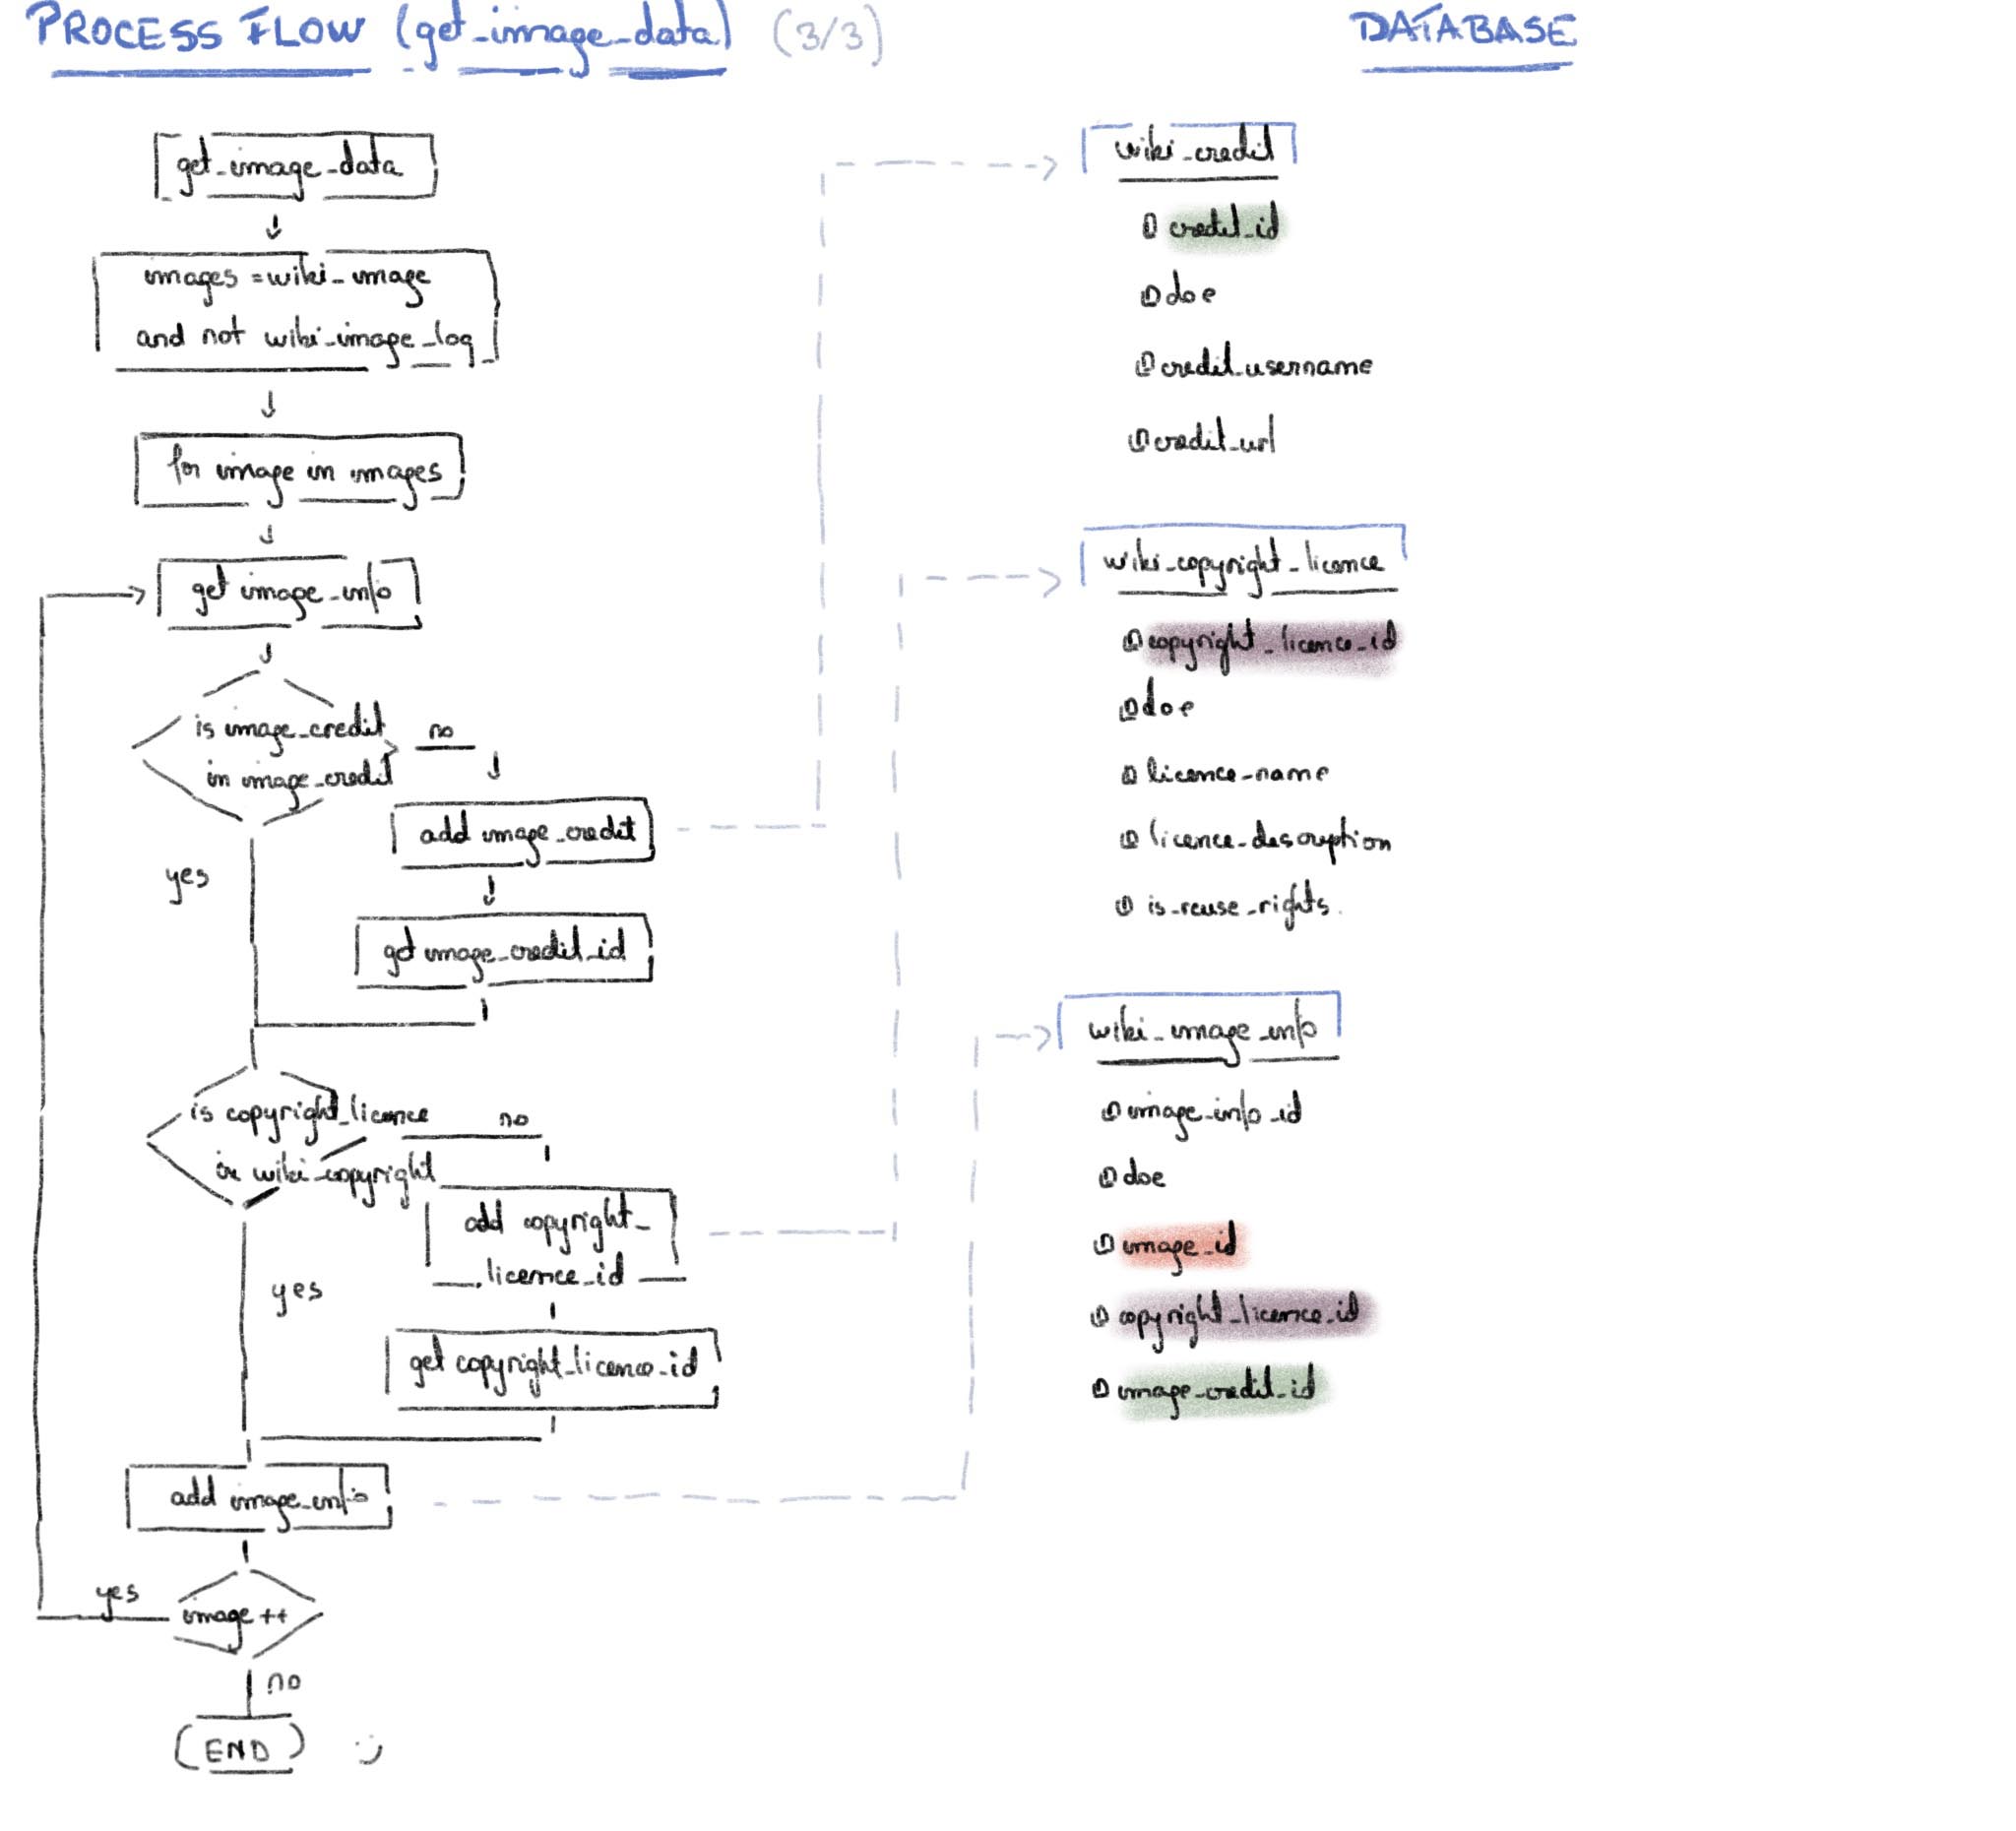 PROCESS FLOW (get_image_data) (3/3)
get_image_data
images = wiki_image
and not wiki_image_log
for image in images
get image_info
is image_credit
in image_credit
no
add image_credit
yes
get image_credit_id
is copyright_licence
in wiki_copyright
no
add copyright_
licence_id
yes
get copyright_licence_id
add image_info
yes
image ++
no
END
DATABASE
wiki_credit
credit_id
doe
credit_username
credit_url
wiki_copyright_licence
copyright_licence_id
doe
licence_name
licence_description
is_reuse_rights.
wiki_image_info
image_info_id
doe
image_id
copyright_licence_id
image_credit_id